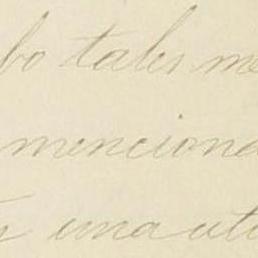 bo tales me
menciona
una uti